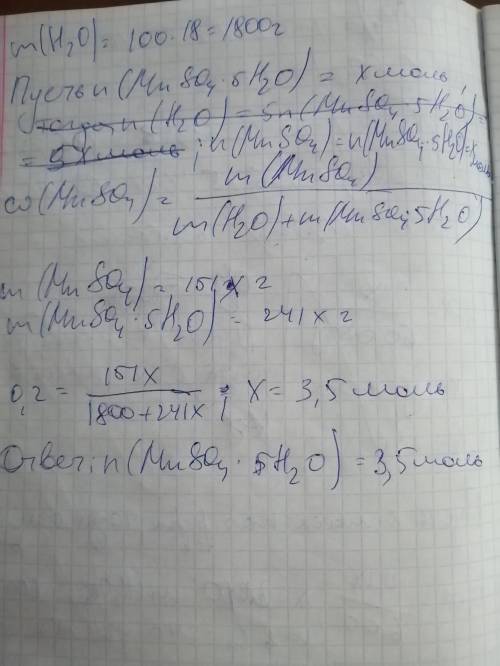 m(H₂O) = 100·18 = 1800г
Пусть n(MnSO₄·5H₂O) = x моль;
тогда n(H₂O) = 5n(MnSO₄·5H₂O) =
= 5x моль; n(MnSO₄) = n(MnSO₄·5H₂O) = x моль
ω(MnSO₄) = m(MnSO₄) / m(H₂O) + m(MnSO₄·5H₂O)
m(MnSO₄) = 151x г
m(MnSO₄·5H₂O) = 241x г
0,2 = 151x / 1800+241x ; x = 3,5 моль
Ответ: n(MnSO₄·5H₂O) = 3,5 моль